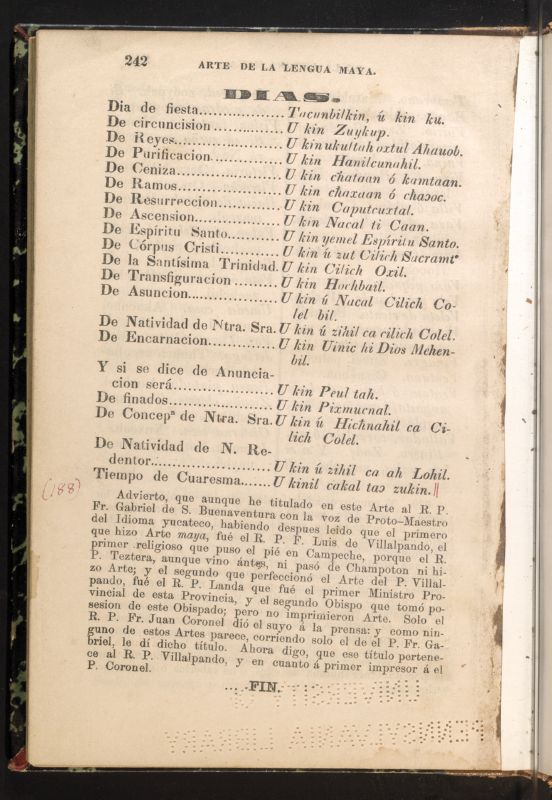 242
ARTE DE LA LENGUA MAYA.
DIAS.
Dia de fiesta.................Tacunbilkin, ú kin ku.
De circuncision..............U kin Zuykup.
De Reyes......................U kin ukultah oxtul Ahauob.
De Purificacion..............U kin Hanilcunahil.
De Ceniza.....................U kin cħataan ó kamtaan.
De Ramos.....................U kin cħaxaan ó chaɔoc.
De Resurreccion............U kin Caputcuxtal.
De Ascension.................U kin Nacal ti Caan.
De Espíritu Santo...........U kin yemel Espíritu Santo.
De Córpus Cristi............U kin ú zut Cilich Sacramtᵒ
De la Santísima Trinidad.U kin Cilich Oxil.
De Transfiguracion.........U kin Hochbail.
De Asuncion..................U kin ú Nacal Cilich Co-
lel bil.
De Natividad de Ntra. Sra.U kin ú zihil ca cilich Colel.
De Encarnacion..............U kin Uinic hi Dios Mehen-
bil.
Y si se dice de Anuncia-
cion será....................U kin Peul tah.
De finados.....................U kin Pixmucnal.
De Concepᵃ de Ntra. Sra.U kin ú Hicħnahil ca Ci-
lich Colel.
De Natividad de N. Re-
dentor........................U kin ú zihil ca ah Lohil.
Tiempo de Cuaresma.......U kinil cakal taɔ zukin.
(188)
Advierto, que aunque he titulado en este Arte al R. P.
Fr. Gabriel de S. Buenaventura con la voz de Proto-Maestro
del Idioma yucateco, habiendo despues leido que el primero
que hizo Arte maya, fué el R. P. F. Luis de Villalpando, el
primer religioso que puso el pié en Campeche, porque el R.
P. Teztera, aunque vino ántes, ni pasó de Champoton ni hi-
zo Arte; y el segundo que perfeccionó el Arte del P. Villal-
pando, fué el R. P. Landa que fué el primer Ministro Pro-
vincial de esta Provincia, y el segundo Obispo que tomó po-
sesion de este Obispado; pero no imprimieron Arte. Solo el
R. P. Fr. Juan Coronel dió el suyo á la prensa: y como nin-
guno de estos Artes parece, corriendo solo el de el P. Fr. Ga-
briel, le dí dicho título. Ahora digo, que ese título pertene-
ce al R. P. Villalpando, y en cuanto á primer impresor á el
P. Coronel.
....FIN.
UNIVERSITY OF
PENNSYLVANIA LIBRARY